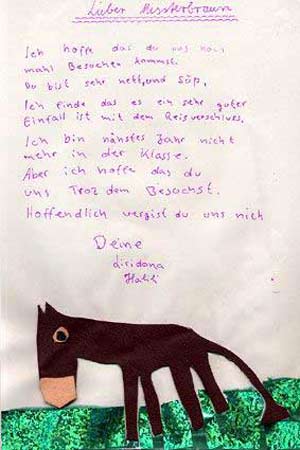 Lieber Missterbraun
Ich hoffe das du uns noch
mahl Besuchen kommst.
Du bist sehr nett, und Süß,
Ich finde das es ein sehr guter
Einfall ist mit dem Reisverschluss.
Ich bin nänstes Jahr nicht
mehr in der Klasse.
Aber ich hoffe das du
uns Troz dem Besuchst.
Hoffendlich vergist du uns nich
Deine
Liridona
Halili